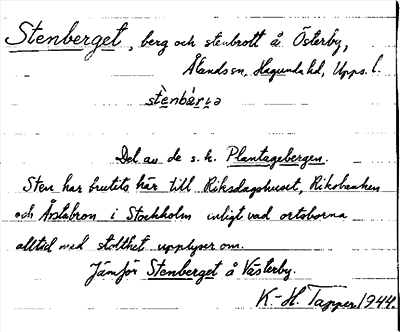 Stenberget, berg och stenbrott å Österby,
Ålands sn, Hagunda hd, Upps. l.
stènbár̲ɉə
Del av de s.k. Plantagebergen.
Sten har brutits här till Riksdagshuset, Riksbanken
och Årstabron i Stockholm enligt vad ortsborna
alltid med stolthet upplyser om.
Jämför Stenberget å Västerby.
K-H. Tapper 1944.